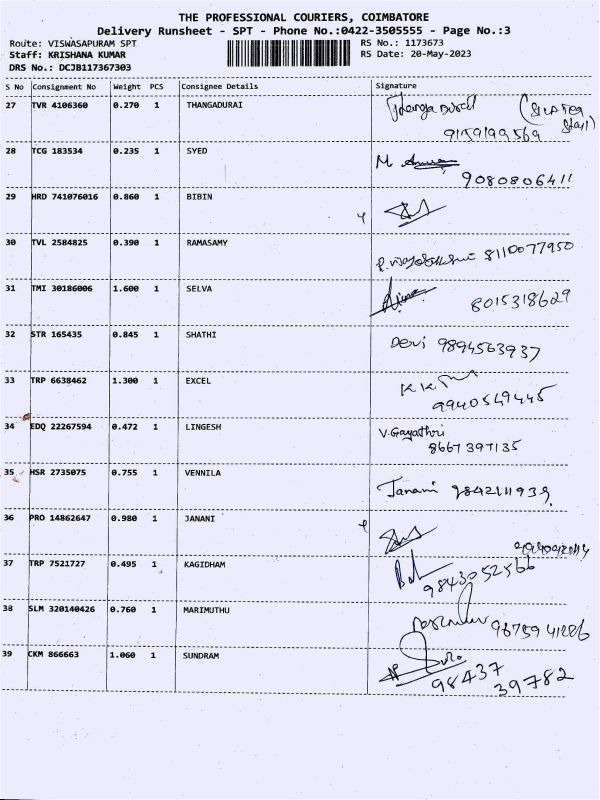 THE PROFESSIONAL COURIERS, COIMBATORE
Delivery Runsheet - SPT - Phone No.:0422-3505555 - Page No.:3
Route: VISWASAPURAM SPT RS No.: 1173673
Staff: KRISHANA KUMAR RS Date: 20-May-2023
DRS No.: DCJB117367303
S No Consignment No Weight PCS Consignee Details Signature
27 TVR 4106360 0.270 1 THANGADURAI
9159199569
28 TCG 183534 0.235 1 SYED M
9080806411
29 HRD 741076016 0.860 1 BIBIN
30 TVL 2584825 0.390 1 RAMASAMY
8110077950
31 TMI 30186006 1.600 1 SELVA
8015318629
32 STR 165435 0.845 1 SHATHI
Devi 9894563937
33 TRP 6638462 1.300 1 EXCEL
9940549445
34 EDQ 22267594 0.472 1 LINGESH V.Gayathri
8667397135
35 HSR 2735075 0.755 1 VENNILA
Janani 9842111939
36 PRO 14862647 0.980 1 JANANI
37 TRP 7521727 0.495 1 KAGIDHAM
9843052566
38 SLM 320140426 0.760 1 MARIMUTHU
39 CKM 866663 1.060 1 SUNDRAM
98437
39782